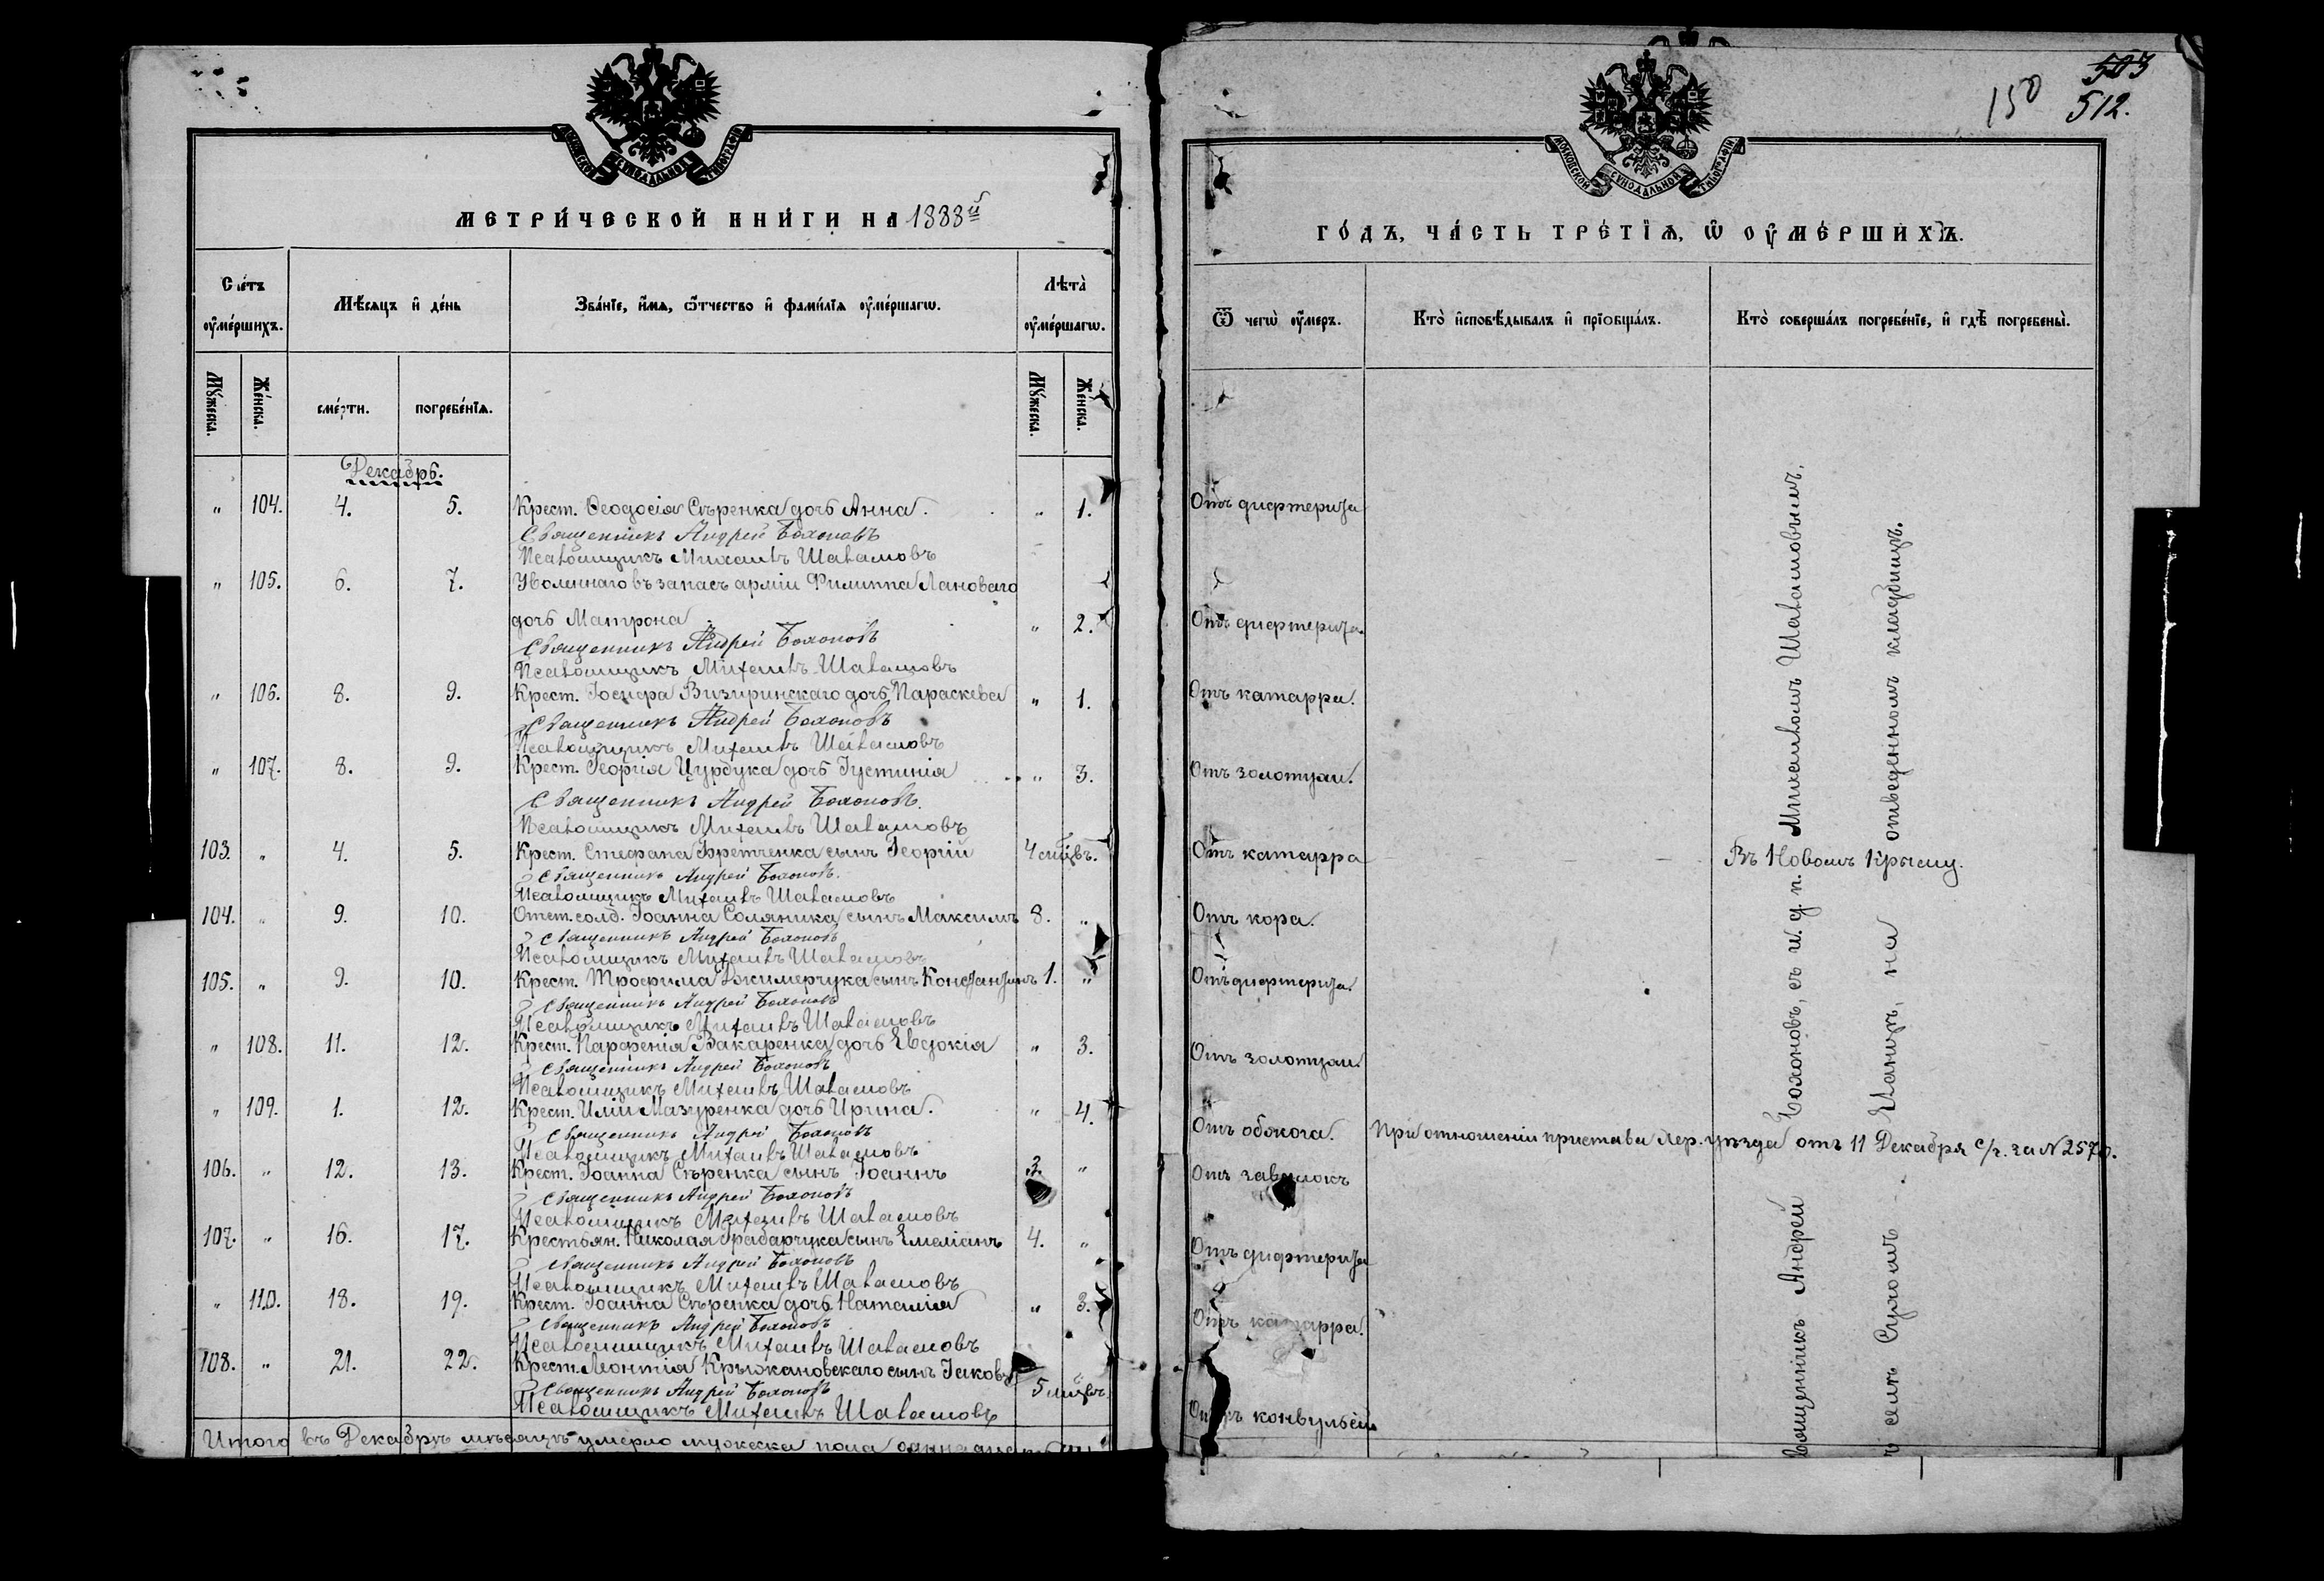 503
150 512.
МОСКОВСКОЙ СѴНОДАЛЬНОЙ ТИПОГРАФІИ
МЕТРИ́ЧЕСКОЙ КНИ́ГИ НА 1888й
Сче́тъ ᲂу҆ме́ршихъ.
Мѣ́сяцъ и҆ де́нь
Зва́нїе, и҆́мѧ, ѻ҆́тчество и҆ фами́лїѧ ᲂу҆ме́ршагѡ.
Лѣта̀ ᲂу҆ме́ршагѡ.
Мꙋ́жеска.
Же́нска.
сме́рти.
погребе́нїѧ.
Мꙋ́жеска.
Же́нска.
Декабрь.
" 104. 4. 5. Крест. Ѳеодосія Съренка дочь Анна. " 1.
Священникъ Андрей Бахоновъ
Псаломщикъ Михаилъ Шаламовъ
" 105. 6. 7. Уволеннаго въ запасъ арміи Филиппа Лановаго
дочь Матрона " 2.
Священникъ Андрей Бахоновъ
Псаломщикъ Михаилъ Шаламовъ
" 106. 8. 9. Крест. Іосифа Визиринскаго дочь Параскева " 1.
Священникъ Андрей Бахоновъ
Псаломщикъ Михаилъ Шаламовъ
" 107. 8. 9. Крест. Георгія Цурдука дочь Іустинія " 3.
Священникъ Андрей Бахоновъ.
Псаломщикъ Михаилъ Шаламовъ
103. " 4. 5. Крест. Стефана сынъ Георгій 4 мцвъ.
Священникъ Андрей Бахоновъ.
Псаломщикъ Михаилъ Шаламовъ
104. " 9. 10. Отст. солд. Іоанна Соляника сынъ Максимъ 8. "
Священникъ Андрей Бахоновъ
Псаломщикъ Михаилъ Шаламовъ
105. " 9. 10. Крест. Трофима Джимерчука сынъ Константинъ 1. "
Священникъ Андрей Бахоновъ
Псаломщикъ Михаилъ Шаламовъ
" 108. 11. 12. Крест. Парфенія Вакаренка дочь Евдокія " 3.
Священникъ Андрей Бахоновъ
Псаломщикъ Михаилъ Шаламовъ
" 109. 1. 12. Крест. Иліи Мазуренка дочь Ирина. " 4.
Священникъ Андрей Бахоновъ
Псаломщикъ Михаилъ Шаламовъ
106. " 12. 13. Крест. Іоанна Съренка сынъ Іоаннъ 3. "
Священникъ Андрей Бахоновъ
Псаломщикъ Михаилъ Шаламовъ
107. " 16. 17. Крестьян. Николая Грабарчука сынъ Емеліанъ 4. "
Священникъ Андрей Бахоновъ
Псаломщикъ Михаилъ Шаламовъ
" 110. 18. 19. Крест. Іоанна Съренка дочь Наталія " 3.
Священникъ Андрей Бахоновъ
Псаломщикъ Михаилъ Шаламовъ
108. " 21. 22. Крест. Леонтія Крыжановскаго сынъ Іаковъ 5 мцвъ.
Священникъ Андрей Бахоновъ
Псаломщикъ Михаилъ Шаламовъ
Итого въ Декабрѣ мѣсяцѣ умерло мужеска пола
МОСКОВСКОЙ СѴНОДАЛЬНОЙ ТИПОГРАФІИ
ГО́ДЪ, ЧА́СТЬ ТРЕ́ТЇѦ, Ѡ҆ ОУ҆МЕ́РШИХЪ.
Ѿ чегѡ̀ ᲂу҆́меръ.
Кто̀ и҆сповѣ́дывалъ и҆ прїѡбща́лъ.
Кто̀ соверша́лъ погребе́нїе, и҆ гдѣ̀ погребены̀.
Отъ дифтерита
Отъ дифтерита.
Отъ катарра.
Отъ золотухи.
Отъ катарра - - - Въ Новомъ Крыму.
Отъ кора.
Отъ дифтерита.
Отъ золотухи.
Отъ обжога. При отношеніи пристава Хер. уѣзда отъ 11 Декабря с/г. за № 257
Отъ завалокъ
Отъ дифтерита
Отъ катарра.
Отъ конвульсій
вященникъ Андрей Бахоновъ, съ и. д. п. Михаиломъ Шаламовымъ,
ъ селѣ Сухомъ Еланцѣ, на отведенномъ кладбищѣ.